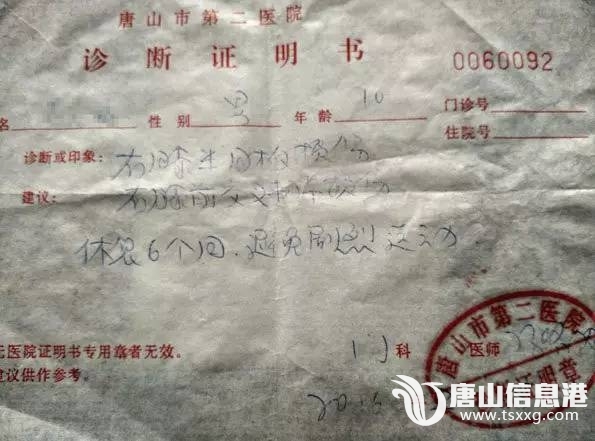 唐山市第二医院
诊断证明书
0060092
名 性别 男 年龄 10 门诊号
住院号
诊断或印象: 右膝半月板损伤
建议: 右膝前交叉韧带损伤
休息6个月.避免剧烈运动.
无医院证明书专用章者无效。
建议供作参考。
门科 医师
唐山市第二医院
证明章
唐山信息港
www.tsxxg.com